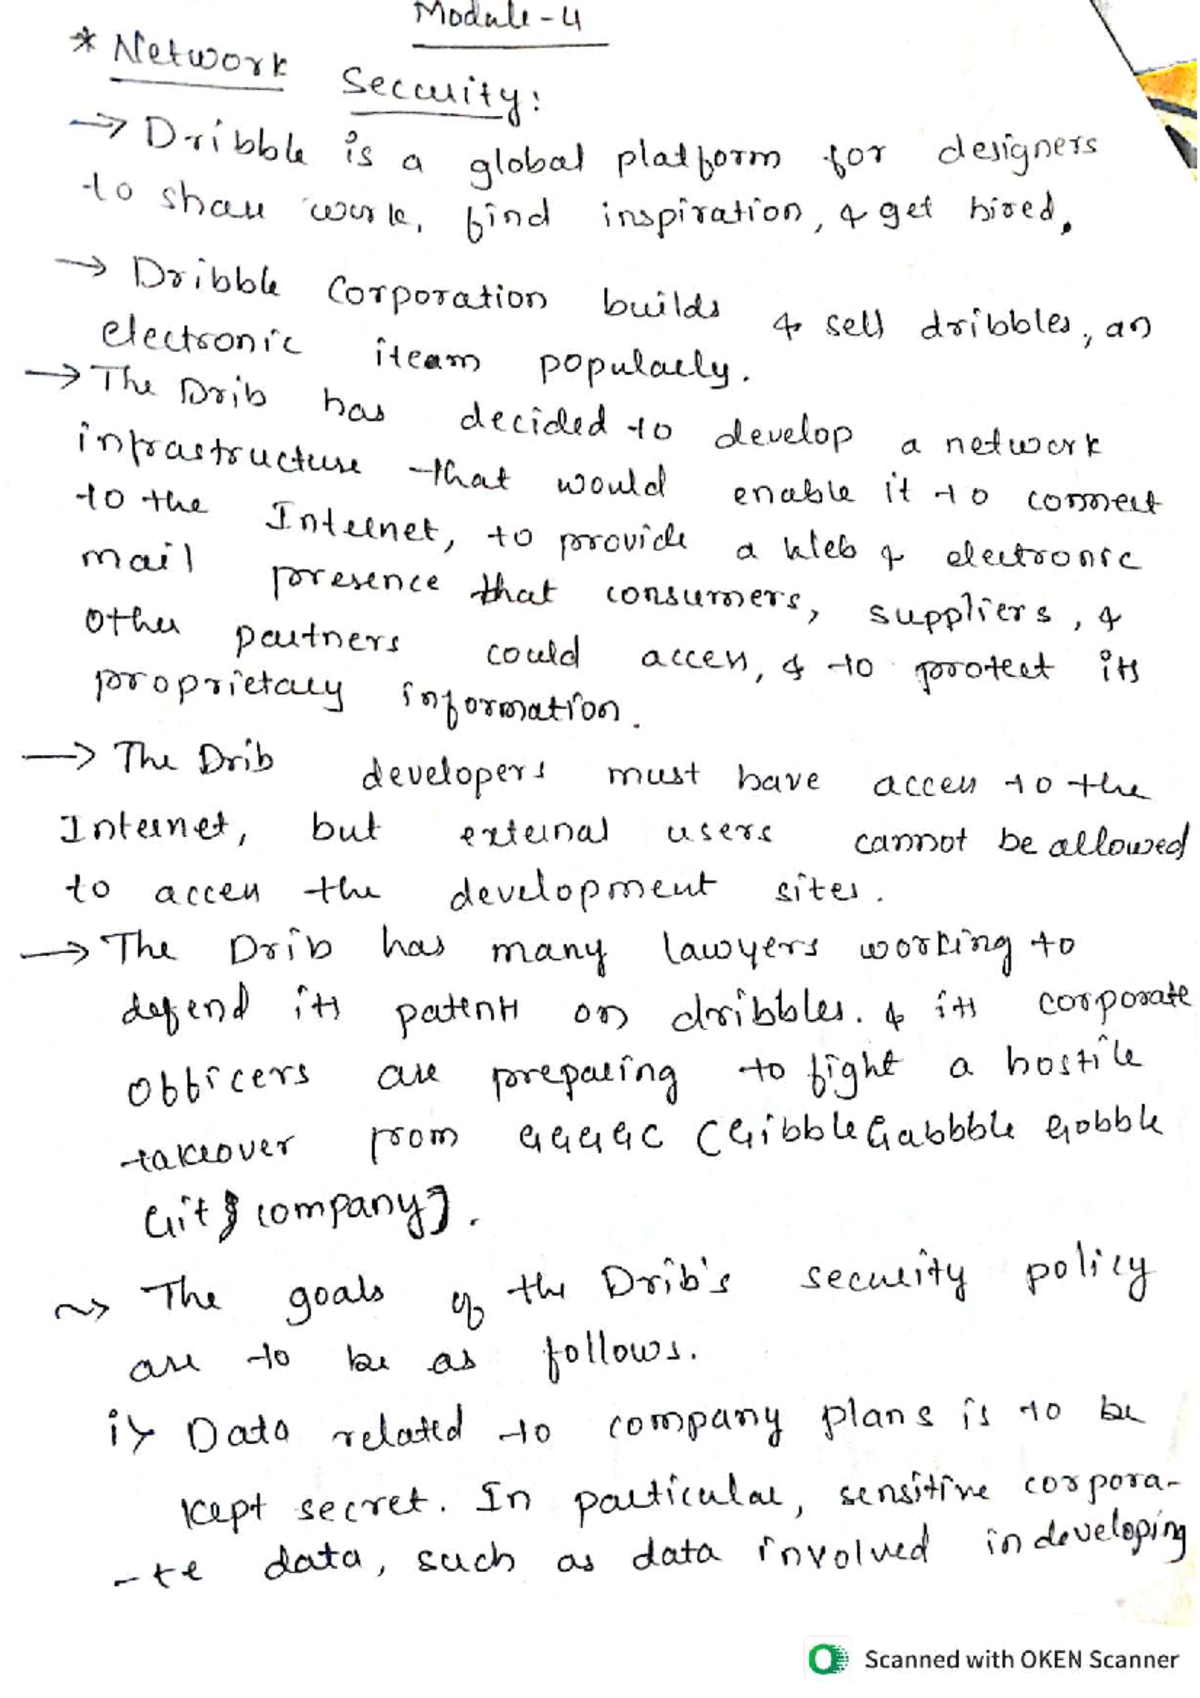 Module-4
* Network Security:
→ Dribble is a global platform for designers
to share work, find inspiration, & get hired.
→ Dribble Corporation builds & sell dribbles, an
electronic iteam popularly.
→ The Drib has decided to develop a network
infrastructure that would enable it to connect
to the Internet, to provide a Web & electronic
mail presence that consumers, suppliers, &
other partners could access, & to protect its
proprietary information.
→ The Drib developers must have access to the
Internet, but external users cannot be allowed
to access the development sites.
→ The Drib has many lawyers working to
defend its patents on dribbles. & its corporate
officers are preparing to fight a hostile
takeover from GGGGC (GibbleGabbble Gobble
Git company].
~> The goals of the Drib's security policy
are to be as follows.
i> Data related to company plans is to be
kept secret. In particular, sensitive corpora-
-te data, such as data involved in developing
Scanned with OKEN Scanner